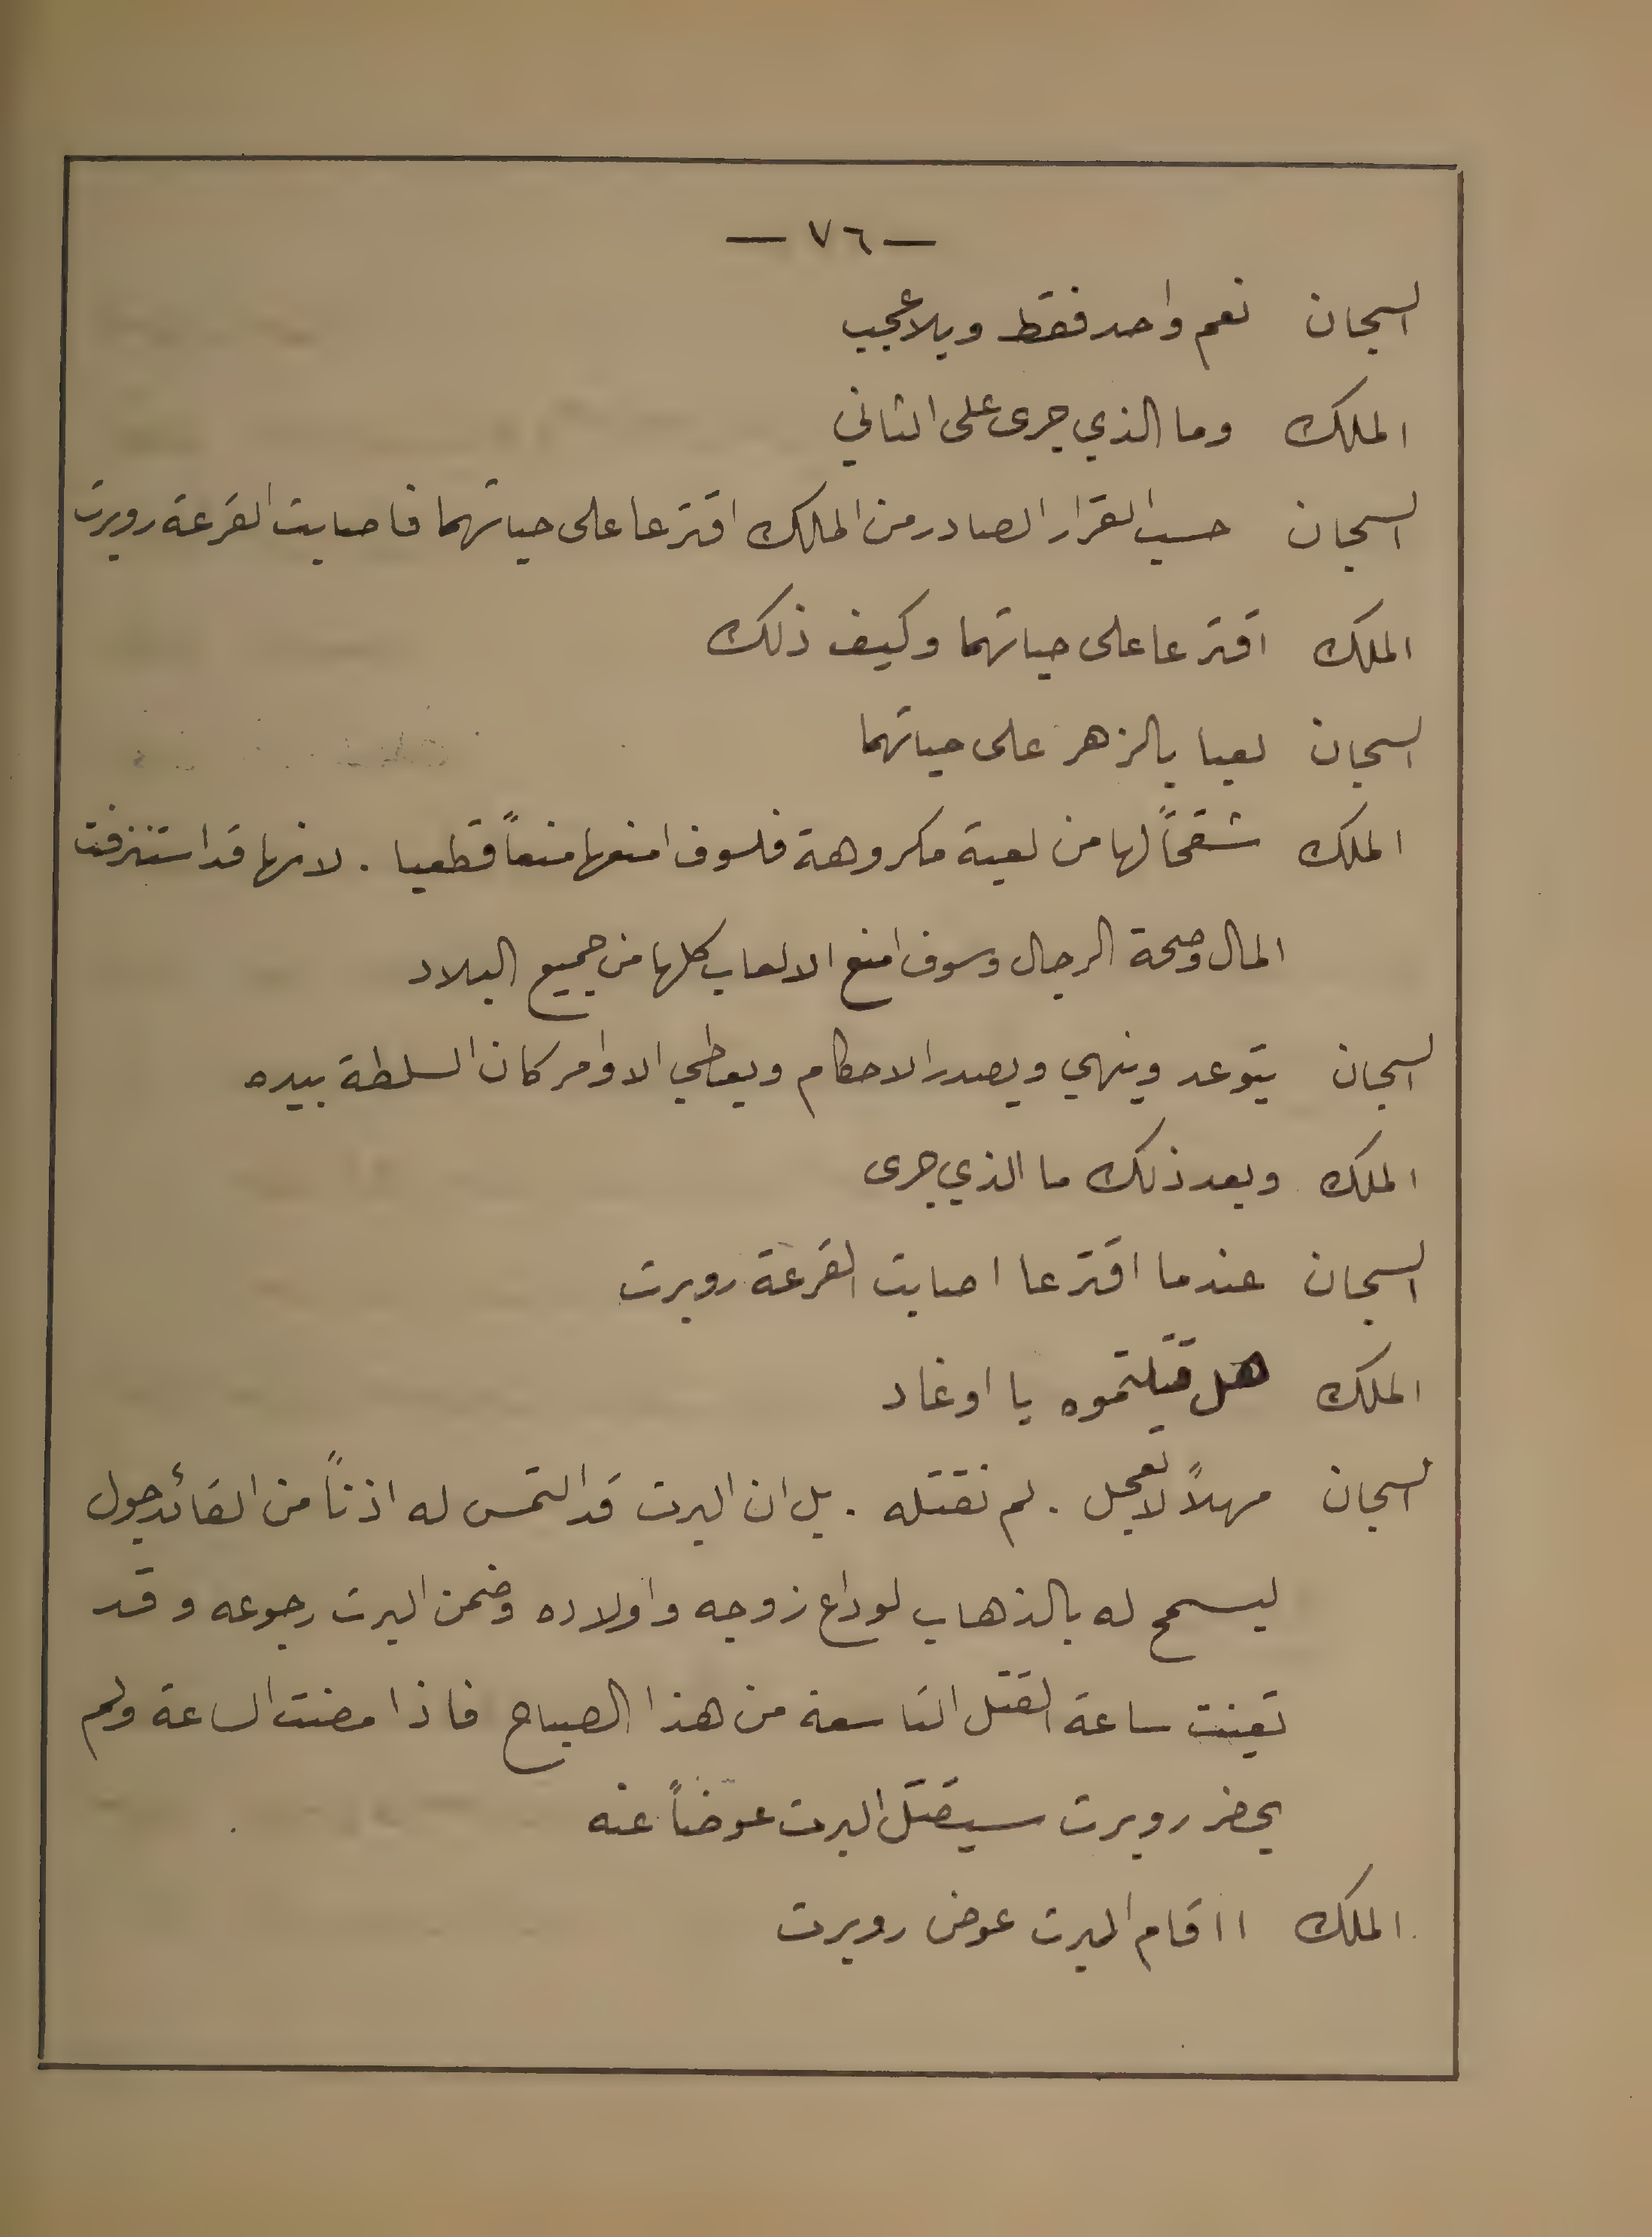 — ٧٦ —
السجان نعم واحد فقط وبلا عجب
الملك وما الذي جرى على الثاني
السجان حسب القرار الصادر من الملك اقترعا على حياتهما فاصابت القرعة روبرت
الملك اقترعا على حياتهما وكيف ذلك
السجان لعبا بالزهر على حياتهما
الملك شقحاً لها من لعبة مكروهة فلسوف امنعها منعاً قطعيا . لانها قد استنزفت
المال وصحة الرجال وسوف امنع الالعاب كلها من جميع البلاد
السجان يتوعد وينهي ويصدر الاحكام ويعطي الاوامر كان السلطة بيده
الملك وبعد ذلك ما الذي جرى
السجان عندما اقترعا اصابت القرعة روبرت
الملك هل قتلتموه يا اوغاد
السجان مهلاً لا تعجل . لم نقتله . بل ان البرت قد التمس له اذناً من القائد جول
ليسمح له بالذهاب لوداع زوجه واولاده وضمن البرت رجوعه وقد
تعينت ساعة القتل التاسعة من هذا الصباح فاذا مضت الساعة ولم
يحضر روبرت سيقتل البرت عوضاً عنه
الملك ااقام البرت عوض روبرت